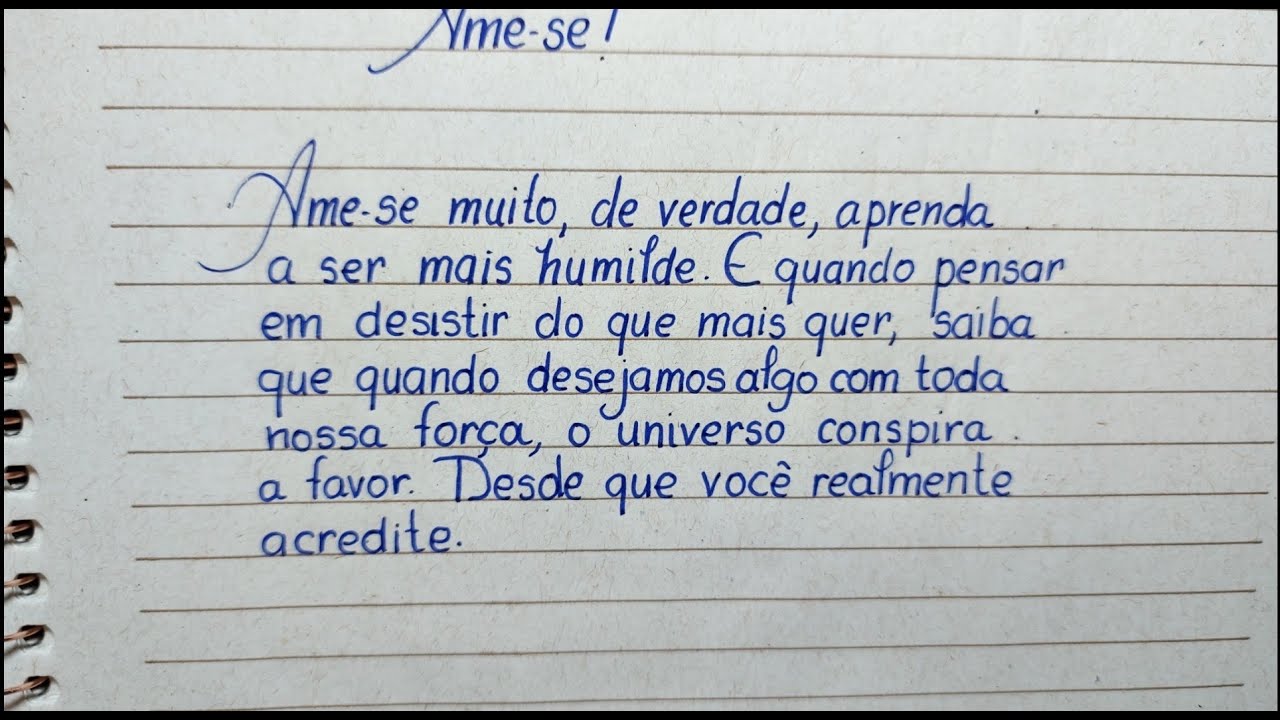 Ame-se!
Ame-se muito, de verdade, aprenda
a ser mais humilde. E quando pensar
em desistir do que mais quer, saiba
que quando desejamos algo com toda
nossa força, o universo conspira
a favor. Desde que você realmente
acredite.